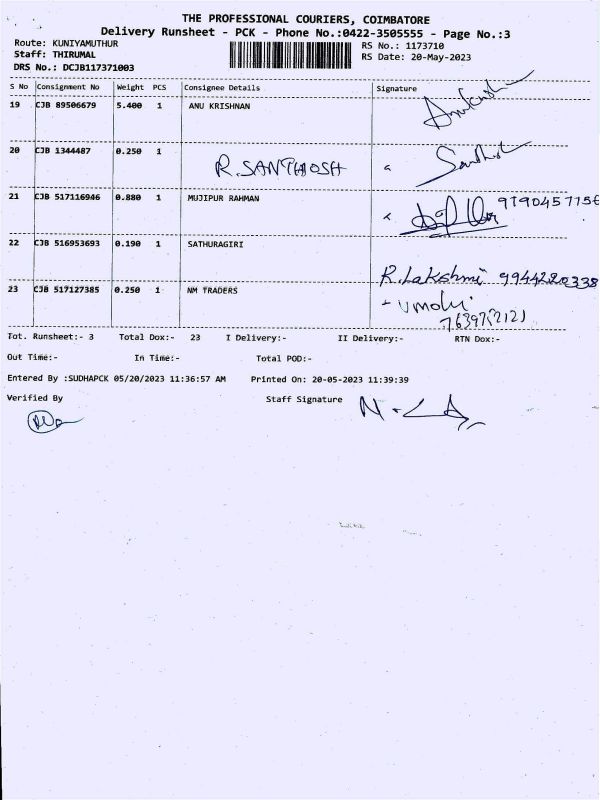 THE PROFESSIONAL COURIERS, COIMBATORE
Delivery Runsheet - PCK - Phone No.:0422-3505555 - Page No.:3
Route: KUNIYAMUTHUR RS No.: 1173710
Staff: THIRUMAL RS Date: 20-May-2023
DRS No.: DCJB117371003
S No Consignment No Weight PCS Consignee Details Signature
19 CJB 89506679 5.400 1 ANU KRISHNAN
20 CJB 1344487 0.250 1 R.SANTHOSH
21 CJB 517116946 0.880 1 MUJIPUR RAHMAN
22 CJB 516953693 0.190 1 SATHURAGIRI
R.Lakshmi 9944220338
23 CJB 517127385 0.250 1 NM TRADERS
Tot. Runsheet:- 3 Total Dox:- 23 I Delivery:- II Delivery:- RTN Dox:-
Out Time:- In Time:- Total POD:-
Entered By :SUDHAPCK 05/20/2023 11:36:57 AM Printed On: 20-05-2023 11:39:39
Verified By Staff Signature